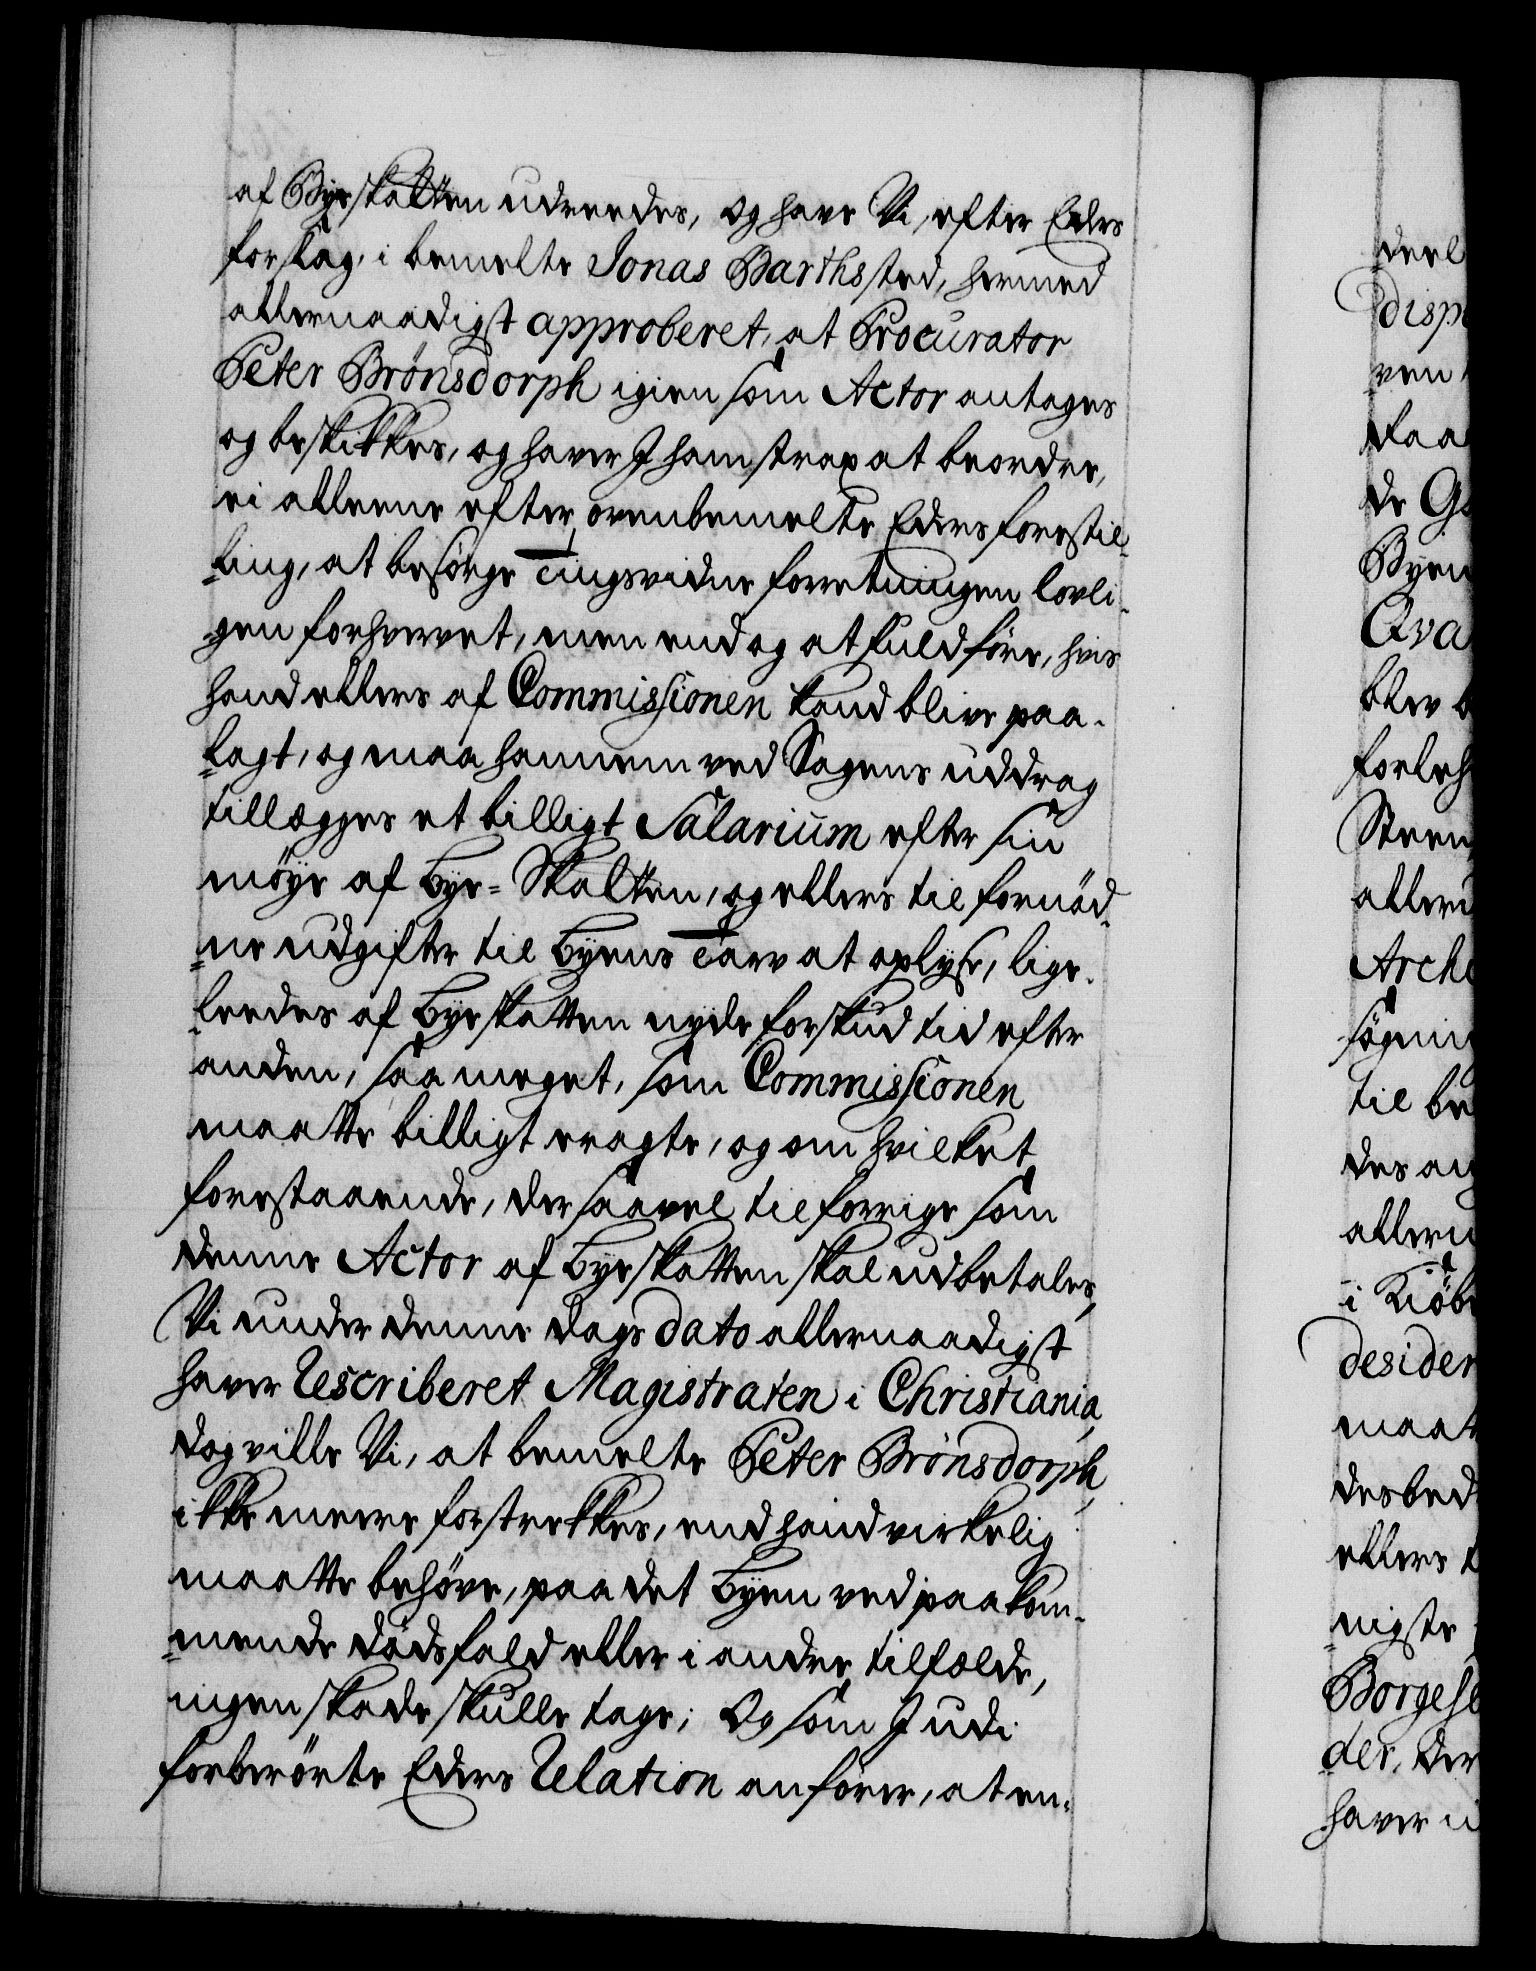 af Byeskatten udreedes, og have Vi, efter Eders
forslag, i bemelte Jonas Barths sted, hermed
allernaadigst approberet, at Procurator
Peter Brønsdorph igien som Actor antages
og beskikkes, og haver I ham strax at beordre,
ei alleene efter ovenbemelte Eders forestil-
ling, at besørge Tingsvidne forretningen lovli-
gen forhvervet, men endog at fuldføre, hvis
hand ellers af Commissionen kand blive paa-
lagt, og maa hannem ved Sagens uddrag
tillægges et billigt Salarium efter sin
møye af Bye-Skatten, og ellers til fornød-
ne udgifter til Byens Tarv at oplyse, lige-
leedes af Byeskatten nyde forskud tid efter
anden, saa meget, som Commissionen
maatte billigt eragte, og om hvilket
forestaaende, der saavel til forrige som
denne Actor af Byeskatten skal udbetales,
Vi under denne dags dato allernaadigst
haver rescriberet Magistraten i Christiania,
dog ville Vi, at bemelte Peter Brønsdorph,
ikke meere forstrekkes, end hand virkelig
maatte behøve, paa det Byen ved paakom-
mende dødsfald eller i andre tilfælde,
ingen skade skulle tage; Og som I udi
forberørte Eders Relation anfører, at en-
deel
disp
ven
faa
de G
Byen
Qva
blev b
forleh
Steen
aller
Arche
søgnin
til be
des an
allern
i Kiøb
desider
maat
desbed
ellers
nigste
Borgese
der, der
haver i